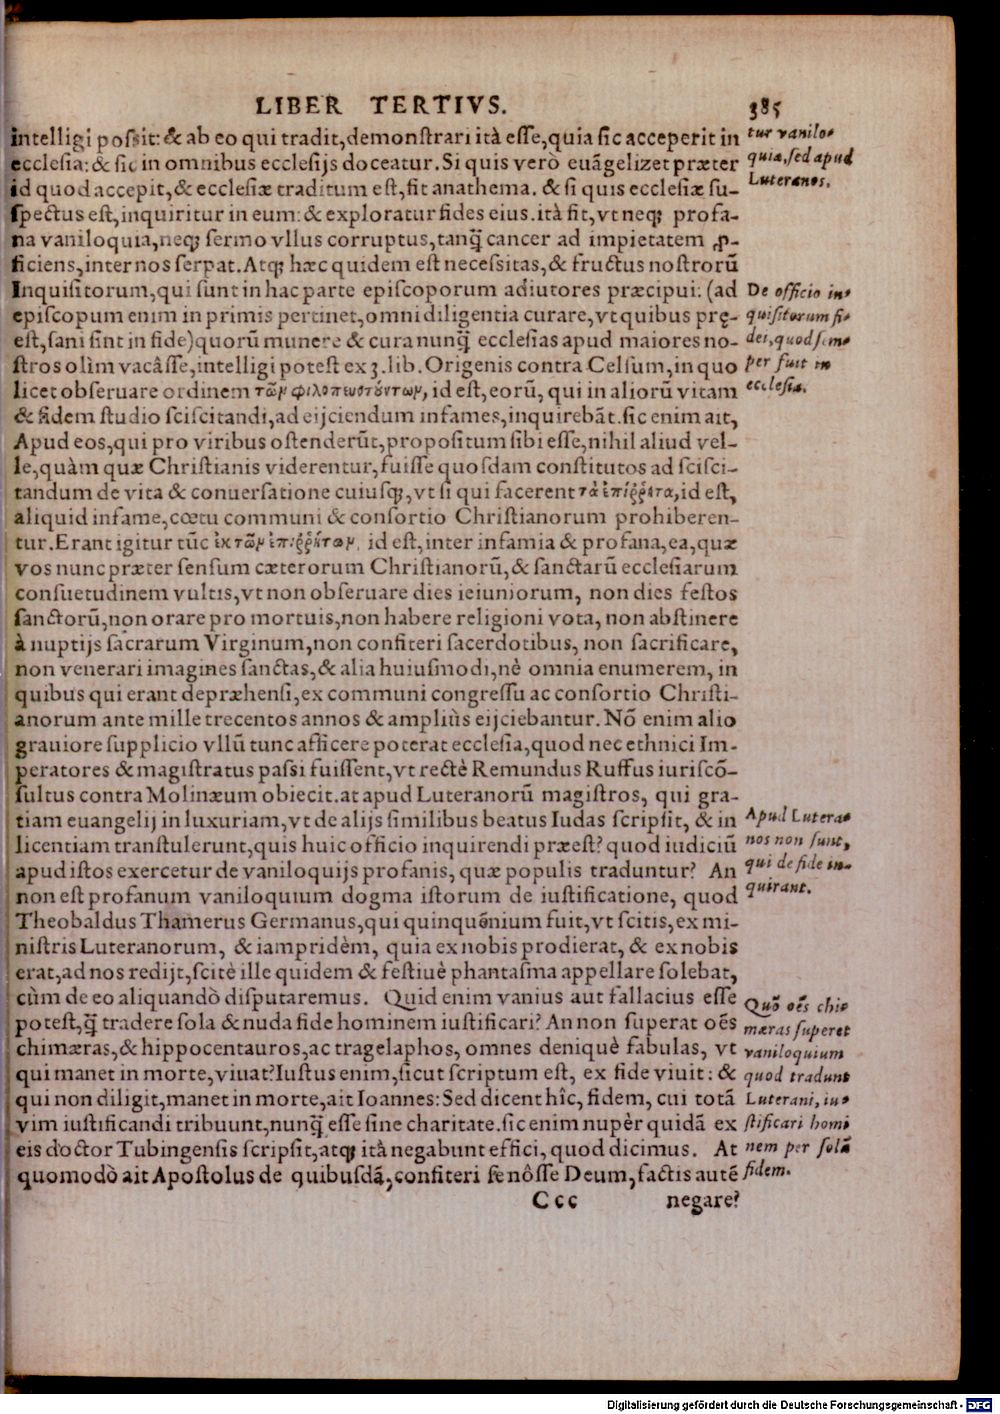 LIBER TERTIVS. 385
intelligi poſsit: & ab eo qui tradit, demonſtrari ità eſſe, quia ſic acceperit in
eccleſia: & ſic in omnibus eccleſijs doceatur. Si quis verò euãgelizet præter
id quod accepit, & eccleſiæ traditum eſt, ſit anathema. & ſi quis eccleſiæ ſu-
ſpectus eſt, inquiritur in eum: & exploratur fides eius. ità fit, vt neq; profa-
na vaniloquia, neq; ſermo vllus corruptus, tanq̃ cancer ad impietatem ꝓ-
ficiens, inter nos ſerpat. Atq; hæc quidem eſt neceſsitas, & fructus noſtrorũ
Inquiſitorum, qui ſunt in hac parte epiſcoporum adiutores præcipui: (ad
epiſcopum enim in primis pertinet, omni diligentia curare, vt quibus prę-
eſt, ſani ſint in fide) quorũ munere & cura nunq̃ eccleſias apud maiores no-
ſtros olìm vacâſſe, intelligi poteſt ex 3. lib. Origenis contra Celſum, in quo
licet obſeruare ordinem τῶμ φιλοπευστούντωμ, id eſt, eorũ, qui in aliorũ vitam
& fidem ſtudio ſciſcitandi, ad eijciendum infames, inquirebãt. ſic enim ait,
Apud eos, qui pro viribus oſtenderũt, propoſitum ſibi eſſe, nihil aliud vel-
le, quàm quæ Chriſtianis viderentur, fuiſſe quoſdam conſtitutos ad ſciſci-
tandum de vita & conuerſatione cuiuſq;, vt ſi qui facerent τὰ ἐπίῤῥητα, id eſt,
aliquid infame, cœtu communi & conſortio Chriſtianorum prohiberen-
tur. Erant igitur tũc ἐκ τῶμ ἐπιῤῥήτωμ, id eſt, inter infamia & profana, ea, quæ
vos nunc præter ſenſum cæterorum Chriſtianorũ, & ſanctarũ eccleſiarum
conſuetudinem vultis, vt non obſeruare dies ieiuniorum, non dies feſtos
ſanctorũ, non orare pro mortuis, non habere religioni vota, non abſtinere
à nuptijs ſacrarum Virginum, non confiteri ſacerdotibus, non ſacrificare,
non venerari imagines ſanctas, & alia huiuſmodi, nè omnia enumerem, in
quibus qui erant depræhenſi, ex communi congreſſu ac conſortio Chriſti-
anorum ante mille trecentos annos & ampliùs eijciebantur. Nõ enim alio
grauiore ſupplicio vllũ tunc afficere poterat eccleſia, quod nec ethnici Im-
peratores & magiſtratus paſsi fuiſſent, vt rectè Remundus Ruffus iuriſcõ-
ſultus contra Molinæum obiecit. at apud Luteranorũ magiſtros, qui gra-
tiam euangelij in luxuriam, vt de alijs ſimilibus beatus Iudas ſcripſit, & in
licentiam tranſtulerunt, quis huic officio inquirendi præeſt? quod iudiciũ
apud iſtos exercetur de vaniloquijs profanis, quæ populis traduntur? An
non eſt profanum vaniloquium dogma iſtorum de iuſtificatione, quod
Theobaldus Thamerus Germanus, qui quinquẽnium fuit, vt ſcitis, ex mi-
niſtris Luteranorum, & iampridèm, quia ex nobis prodierat, & ex nobis
erat, ad nos redijt, ſcitè ille quidem & feſtiuè phantaſma appellare ſolebat,
cùm de eo aliquandò diſputaremus. Quid enim vanius aut fallacius eſſe
poteſt, q̃ tradere ſola & nuda fide hominem iuſtificari? An non ſuperat oẽs
chimæras, & hippocentauros, ac tragelaphos, omnes deniquè fabulas, vt
qui manet in morte, viuat? Iuſtus enim, ſicut ſcriptum eſt, ex fide viuit: &
qui non diligit, manet in morte, ait Ioannes: Sed dicent hîc, fidem, cui totã
vim iuſtificandi tribuunt, nunq̃ eſſe ſine charitate. ſic enim nupèr quidã ex
eis doctor Tubingenſis ſcripſit, atq; ità negabunt effici, quod dicimus. At
quomodò ait Apoſtolus de quibuſdã, confiteri ſe nôſſe Deum, factis autẽ
Ccc negare?
tur vanilo-
quia, ſed apud
Luteranos.
De officio in-
quiſitorum fi-
dei, quod ſem-
per fuit in
eccleſia.
Apud Lutera-
nos non ſunt,
qui de fide in-
quirant.
Quõ oẽs chi-
mæras ſuperet
vaniloquium
quod tradunt
Luterani, iu-
ſtificari homi
nem per ſolã
fidem.
Digitalisierung gefördert durch die Deutsche Forschungsgemeinschaft - DFG